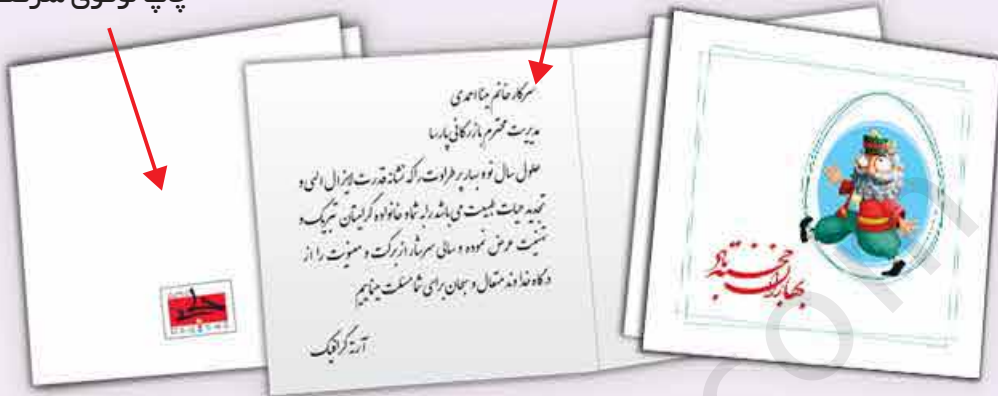 چاپ لوگوی شرکت
سرکار خانم مینا احمدی
مدیریت محترم بازرگانی پارسا
حلول سال نو و بهار پر طراوت را که نشانه قدرت لایزال الهی و
تجدید حیات طبیعت می باشد را به شما و خانواده گرامیتان تبریک و
تهنیت عرض نموده و سالی سرشار از برکت و معنویت را از
درگاه خداوند متعال و سبحان برای شما مسئلت مینماییم
آرته گرافیک
بهارتان خجسته باد
com